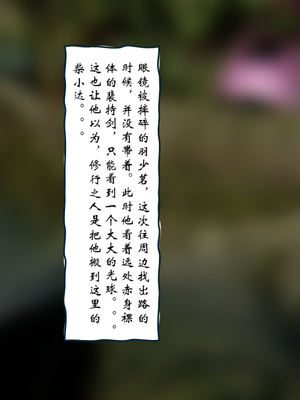 眼镜被摔碎的羽少茗，这次往周边找出路的
时候，并没有带着。此时他看着远处赤身裸
体的裴持剑，只能看到一个大大的光球。。。
这也让他以为，修行之人是把他搬到这里的
柴小达。。。